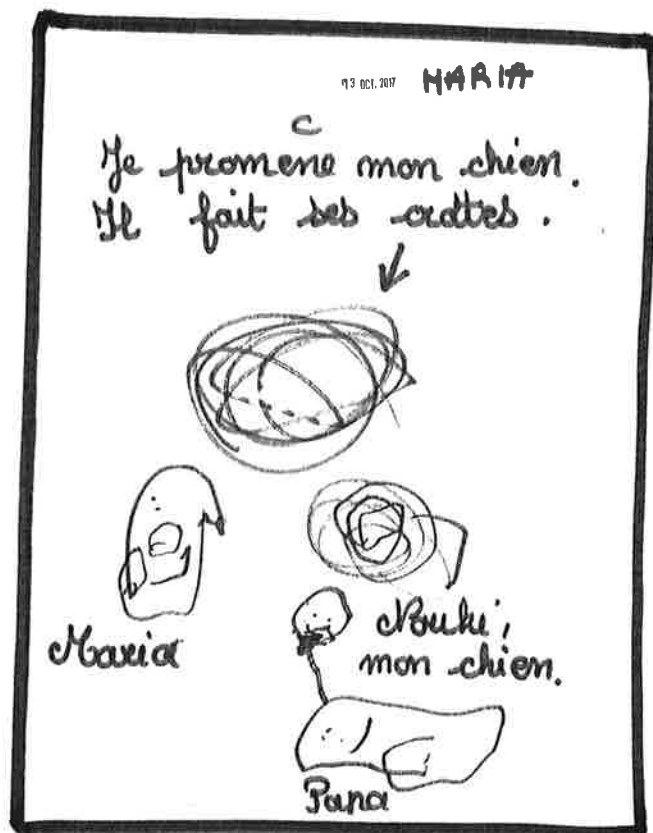 13 OCT. 2017 MARIA
C
Je promene mon chien.
Il fait ses crottes.
Maria
Nouki,
mon chien.
Papa